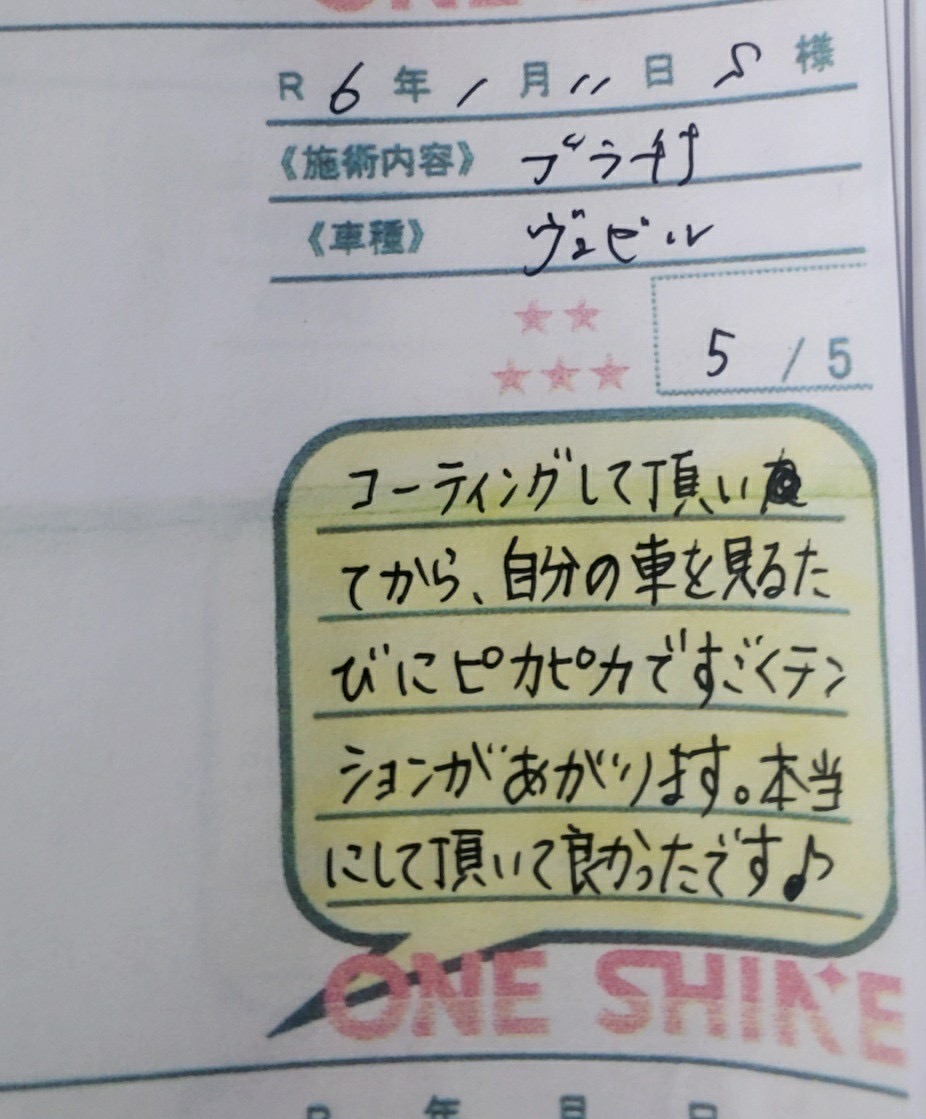 R 6年 1月 11日 S 様
《施術内容》
《車種》 ヴェゼル
5 / 5
コーティングして頂い
てから、自分の車を見るた
びにピカピカですごくテン
ションがあがります。本当
にして頂いて良かったです♪
ONE SHINE
年 月 日